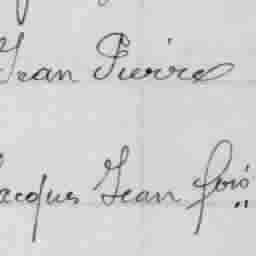 Jean Pierre
Jacques Jean